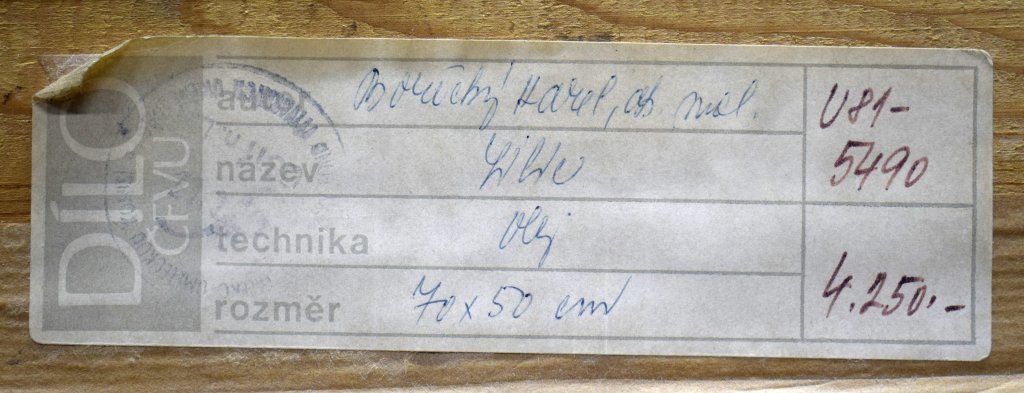 DÍLO
ČFVU
autor Borecký Karel, ak. mal.
název Lilie
technika olej
rozměr 70 x 50 cm
U81-
5490
4.250.-